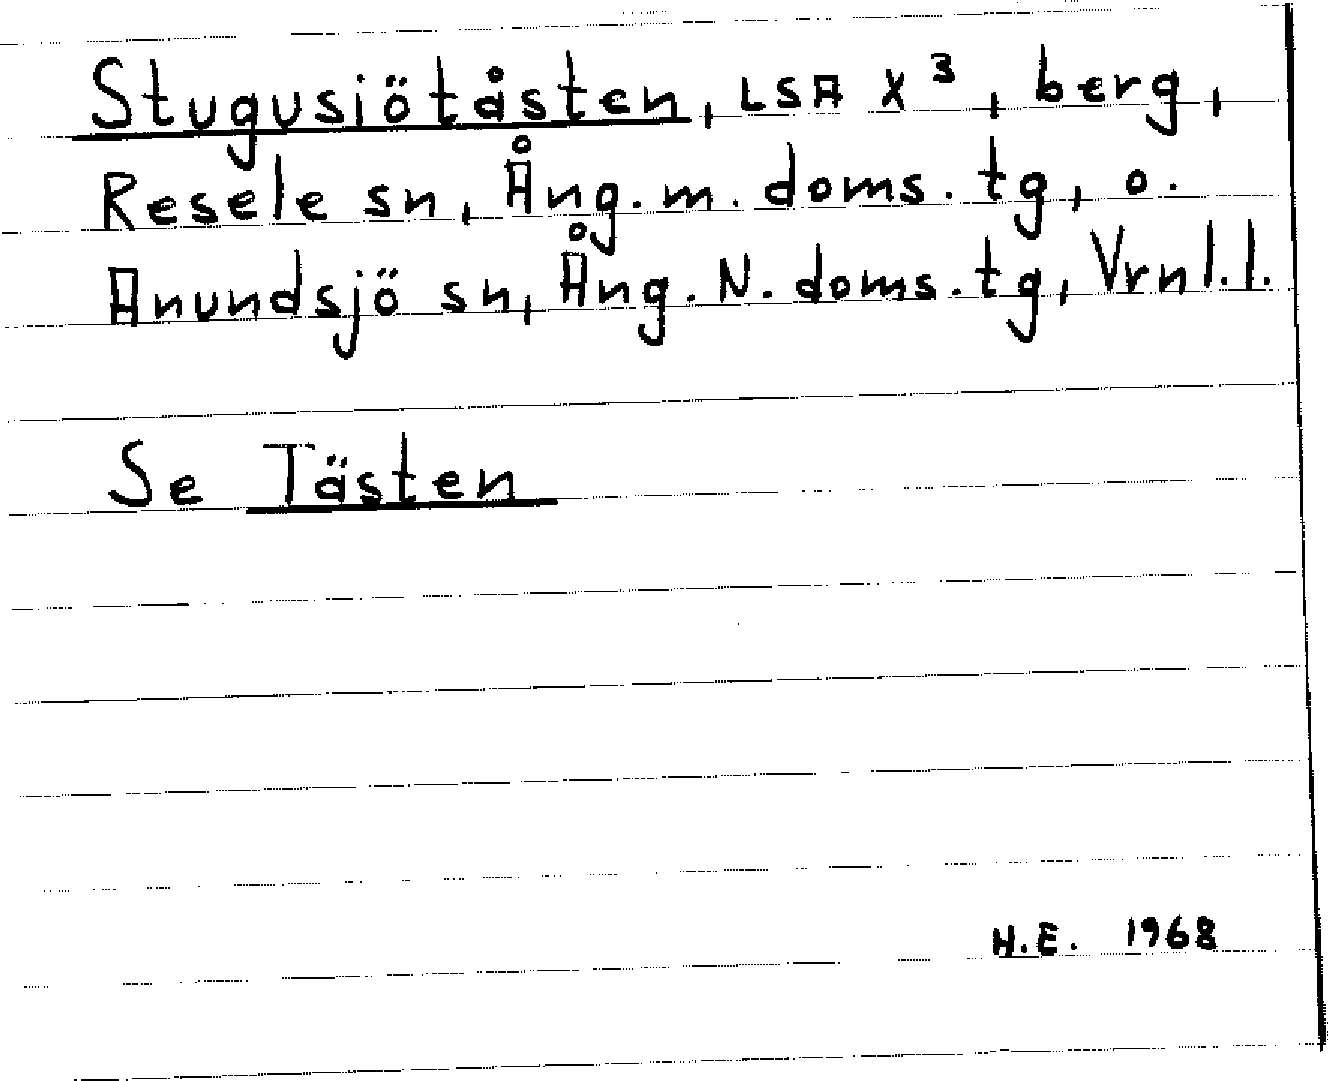 Stugusiötåsten, LSA X³, berg,
Resele sn, Ång. m. doms. tg, o.
Anundsjö sn, Ång. N. doms. tg, Vrnl.l.
Se Tästen
H.E. 1968